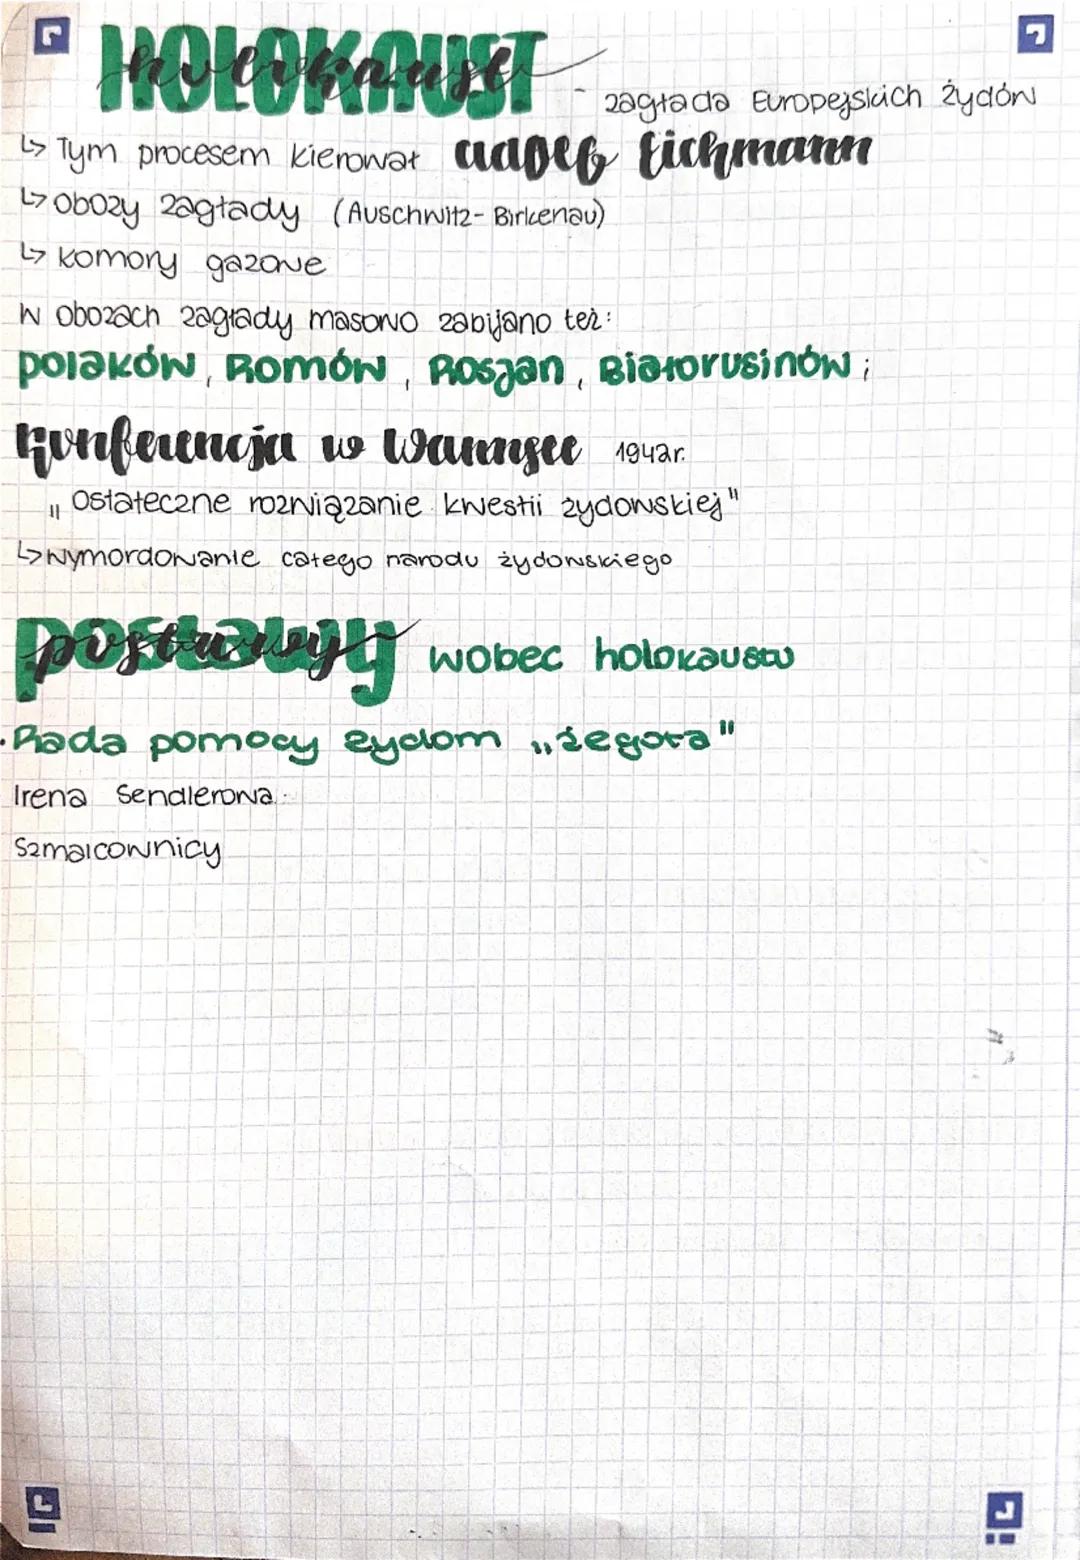 HOLOKAUST holokaust - zagłada Europejskich żydów
↳ Tym procesem kierował Adolf Eichmann
↳ obozy zagłady (Auschwitz-Birkenau)
↳ komory gazowe
W obozach zagłady masowo zabijano też:
Polaków, Romów, Rosjan, Białorusinów;
Konferencja w Wannsee 1942r.
„Ostateczne rozwiązanie kwestii żydowskiej"
↳ wymordowanie całego narodu żydowskiego
postawy postawy wobec holokaustu
• Rada pomocy żydom „żegota"
Irena Sendlerowa
Szmalcownicy